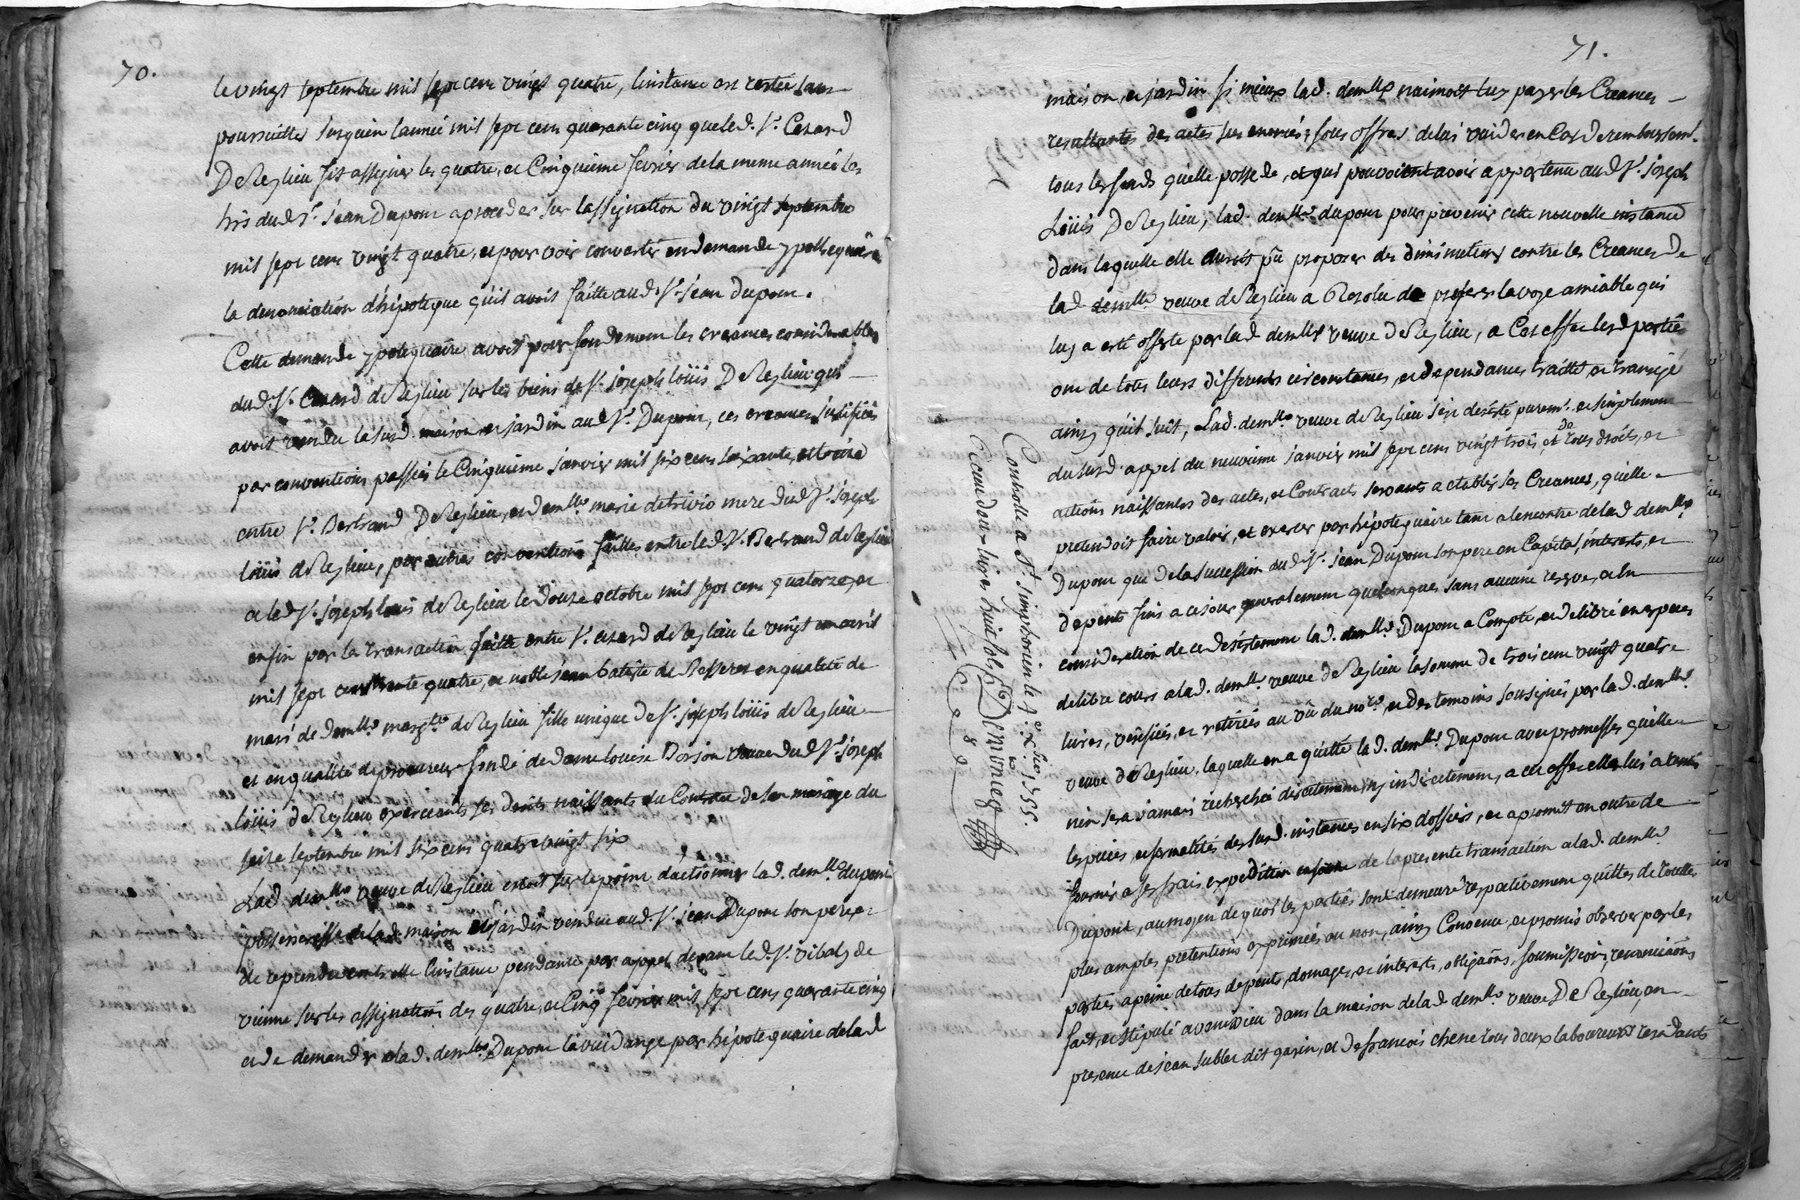 70.
le vingt septembre mil sept cens vingt quatre, linstance est restée sans
poursuittes jusquen lannée mil sept cens quarante cinq que led. Sr. Cezard
DeReglieu fit assigner les quatre, et Cinquième fevrier dela meme année les
hrs dud Sr. jean Dupont aproceder sur lassignation du vingt septembre
mil sept cens vingt quatre, et pour voir convertir endemande ypothequaire
la denonciation dhipoteque quil avoit faitte aud. Sr. jean dupont.
Cette demande ypotequaire avoit pour fondement les creances considerables
dud. Sr. Cezard de Reglieu sur les biens de Sr. joseph loüis DeReglieu qui
avoit vendu la susd. maison et jardin aud Sr. Dupont, ces creances justifiées
par conventions passées le Cinquième janvier mil six cens soixante, et treize
entre Sr. Bertrand DeReglieu, et demlle marie detrivio mere dud Sr. joseph
loüis deReglieu, par autres conventions faittes entre led. Sr. Bertrand deReglieu
et led Sr. joseph louis deReglieu le Douze octobre mil sept cens quatorze, et
enfin par la transaction faitte entre Sr. cezard deReglieu le vingt un avril
mil sept cens trente quatre, et noble jean batiste de enqualité de
mari de demlle. margte. deReglieu fille unique de Sr. joseph loüis deReglieu
et enqualité deprocureur fondé de dame louise Dorjon veuve dud Sr. joseph
loüis deReglieu exerceants ses droits naissants du Contract de son mariage du
seize septembre mil six cens quatre vingt six
Lad. demlle veuve deReglieu estoit sur le point dactionner lad. demlle. dupont
possesseresse delad maison et jardin vendue aud. Sr. jean Dupont son pere et
de reprendre contr elle linstance pendante par appel devant led. Sr. vibaly de
vienne sur les assignations des quatre, et Cinq fevrier mil sept cens quarante cinq
et de demander alad. demlle. Dupont la vuidange par hipotequaire delad
71.
maison, et jardin si mieux lad. demlle naimoit luy payer les Creances
resultantes des actes sus enoncés; sous offres deluy vuider en Cas de remboursemt.
tous les fonds quelle possede, et qui pouvoient avoir appartenu aud Sr. joseph
Loüis DeReglieu, lad. demlle. dupont pour prevenir cette nouvelle instance
dans laquelle elle auroit pû proposer des diminutions contre les Creances De
lad demlle. veuve deReglieu a Resolu de preferer la voye amiable qui
luy a esté offerte par lad demlle veuve deReglieu, a Cet effet lesd parties
ont de tous leurs differends circonstances, et dependances traitté, et transigé
ainsy quil suit, Lad. demlle veuve deReglieu sest desisté puremt. et simplement
du susd. appel du neuvieme janvier mil sept cens vingt trois, et de tous droits, et
actions naissantes des actes, et Contracts servants a etablir ses Creances, quelle
pretendoit faire valoir, et exercer par hipotequaire tant alencontre delad demlle
Dupont que dela succession dud Sr. jean Dupont son pere en Capital, interests, et
depents jusques acejour generalement quelconques sans aucune reserve, et en
consideration de ce desistement lad. demlle. Dupont a Compté, et delibré en especes
delibre cours alad. demlle. veuve deReglieu la somme de trois cent vingt quatre
livres, verifiées, et retirées au vû du nore, et des temoins sousignés par lad. demlle.
veuve deReglieu, laquelle en a quitté lad. demlle. Dupont avec promesses quelle
nen sera jamais recherchée directement, ny indirectement, a cet effet elle luy a remis
les pieces, et formalités desusd. instances en six dossiers, et apromit en outre de
fournir a ses frais expedition enforme de la presente transaction alad. demlle
Dupont, aumoyen dequoi les parties sont demeuré respectivement quittes de toutte
plus amples pretentions exprimées ou non, ainsy Convenu, et promis observer par les
parties apeine detous depents, domages, et interests, obligaõns, soumissions, renonciaõns
fait, et stipulé avenissieu dans la maison delad demlle veuve DeReglieu, en
presence de jean sublet dit garin, et defrancois chene tous deux laboureurs residants
Controllé a St. simphorien le 9e. Xbre, 1755.
Reçu douze livres huit sols DENOVIEG